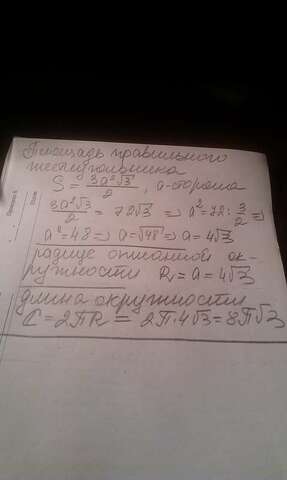 Площадь правильного
шестиугольника
S = 3a²√3/2, a-сторона
3a²√3/2 = 72√3 ⇒ a² = 72 : 3/2 ⇒
a² = 48 ⇒ a = √48 ⇒ a = 4√3
радиус описанной ок-
ружности R = a = 4√3
длина окружности
C = 2πR = 2π·4√3 = 8π√3